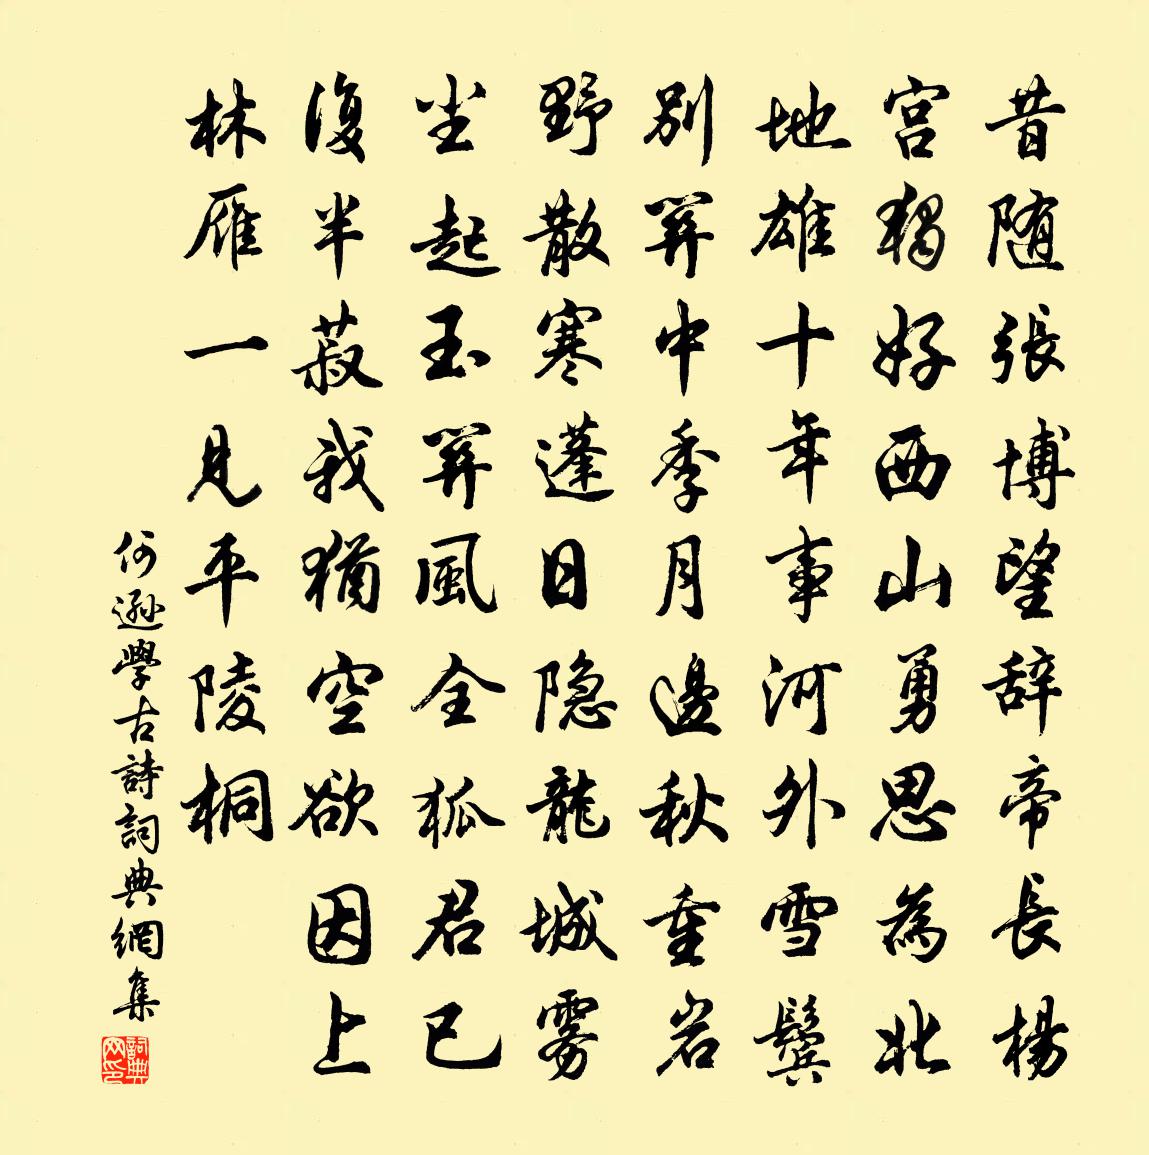 昔随張博望辞帝長楊
宫獨好西山勇思為北
地雄十年事河外雪鬓
别關中季月邊秋重岩
野散寒蓬日隐龍城雾
尘起玉關風全狐君已
復半菽我猶空欲因上
林雁一見平陵桐
何遜學古詩詞典網集
詞典网印